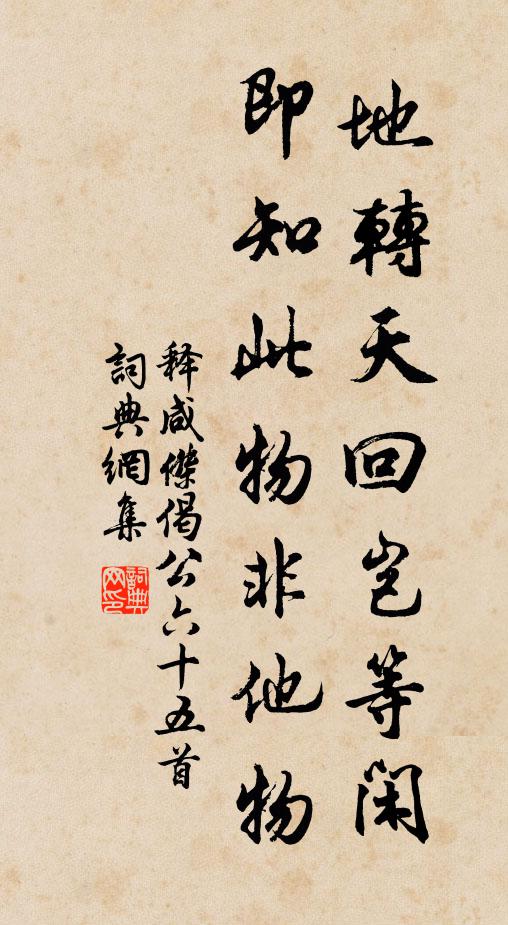 地轉天回岂等閑
即知此物非他物
释咸傑偈公六十五首
詞典網集
詞典网印